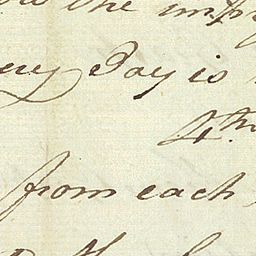 the imp
ery Day is
4th
from each